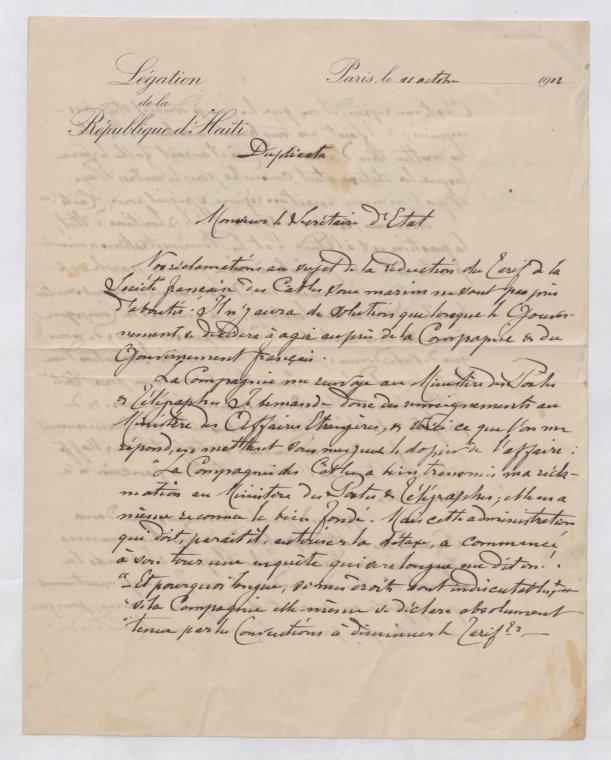 Légation
de la
République d'Haïti
Paris, le 11 octobre 1912
Duplicata
Monsieur le Secrétaire d'Etat
Nos réclamations au sujet de la réduction du Tarif de la
Société française des Cables sous marins ne sont pas près
d'aboutir. Il n'y aura de solution que lorsque le Gouver-
nement se décidera à agir auprès de la Compagnie & du
Gouvernement français.
La Compagnie me renvoye au Ministère des Postes
& Télégraphes. Je demande donc des renseignements au
Ministère des Affaires Etrangères, & voici ce que l'on me
répond, en mettant sous mes yeux le dossier de l'affaire :
"La Compagnie des Cables a bien transmis ma récla-
mation au Ministère des Postes & Télégraphes; elle en a
même reconnu le bien fondé. Mais cette administration
qui doit, paraît-il, autoriser la détaxe, a commencé
à son tour une enquête qui sera longue me dit on!
"- Et pourquoi longue, si mes droits sont indiscutables,
"si la Compagnie elle-même se déclare absolument
"tenue par les Conventions à diminuer le Tarif?" -